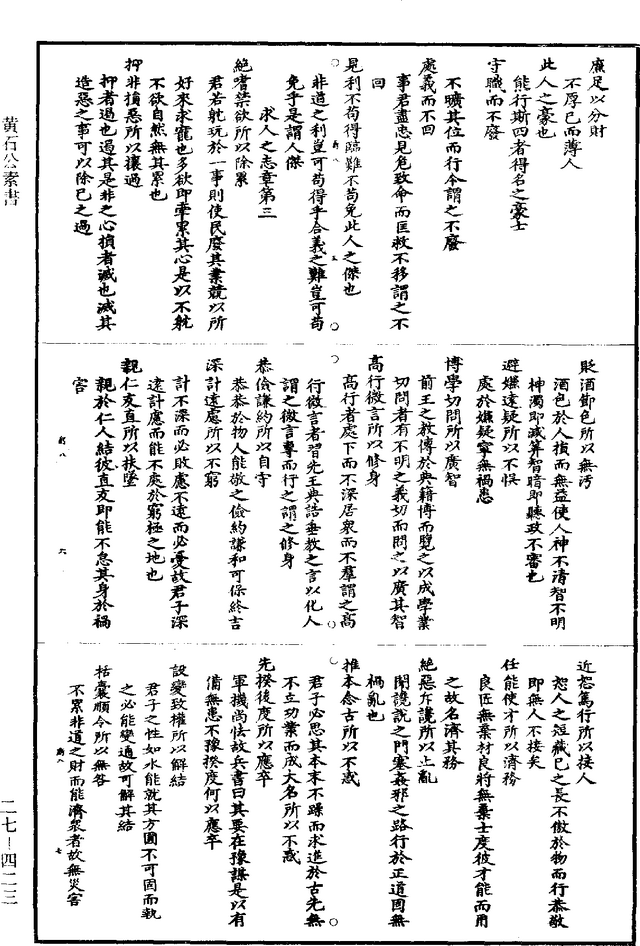 廉足以分財
不厚己而薄人
此人之豪也
能行斯四者得名之豪士
守職而不廢
不曠其位而行令謂之不廢
處義而不回
事君盡忠見危致命而匡救不移謂之不
回
見利不苟得臨難不苟免此人之傑也
非道之利豈可苟得乎合義之難豈可苟
免乎是謂人傑
求人之志章第三
絕嗜禁欲所以除累
君若躭玩於一事則使民廢其業競以所
好來求寵也多欲即牽累其心是以不躭
不欲自然無其累也
抑非損惡所以攘過
抑者遏也遏其是非之心損者滅也滅其
造惡之事可以除已之過
貶酒卹色所以無汚
酒色於人損而無益使人神不清智不明
神濁即減筭智暗即聽政不審也
避嫌遠疑所以不悮
處於嫌疑寧無禍患
博學切問所以廣智
前王之教博於典籍博而覽之以成學業
切問者有不明之義切而問之以廣其智
高行微言所以修身
高行者處下而不深居衆而不羣謂之高
行微言者習先王典誥垂教之言以化人
謂之微言專而行之謂之修身
恭儉謙約所以自守
恭恭於物人能敬之儉約謙和可保終吉
深計遠慮所以不窮
計不深而必敗慮不遠而必憂故君子深
遠計慮而能不處於窮極之地也
親仁友直所以扶墜
親於仁人結彼直友即能不怠其身於禍
害
近恕篤行所以接人
恕人之短藏已之長不傲於物而行恭敬
即無人不接矣
任能使才所以濟務
良匠無棄材良將無棄士度彼才能而用
之故名濟其務
絕惡斥讒所以止亂
閉讒說之門塞姦邪之路行於正道國無
禍亂也
推本念古所以不惑
君子必思其本末不躁而求進於古先無
不立功業而成大名所以不惑
先揆後度所以應卒
軍機尚怯故兵書曰其要在豫謀是以有
備無患不豫揆度何以應卒
設變致權所以解結
君子之性如水能就其方圓不可固而執
之必能變通故可解其結
括囊順令所以無咎
不累非道之財而能濟衆者故無災害
黃石公素書
二七—四二三